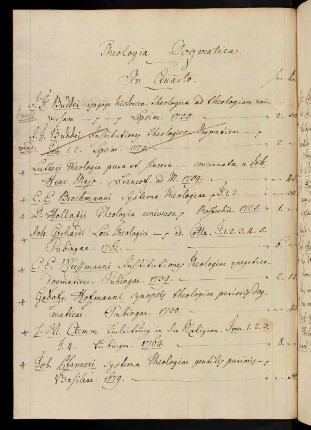 Theologia Dogmatica.
In Quarto.
J. F. Buddei isagoge historico Theologica ad Theologiam uni-
versam Lipsiae. 1730.
J. F. Buddei Institutiones Theologiae Dogmaticae
Tom. 1. 2. Lipsiae
Lutheri Theologia pura et sincera concinnata a Joh.
Henr. Majo. Francof. ad M. 1709.
C. E. Brochmanni Systema Theologiae
D. Hollatii Theologia universa, Rostochii 1725.
Joh. Gerhardi Loci Theologici ed. Cotta. T. 1. 2. 3. 4. 5.
Tubingae. 1762.
C. E. Weissmanni Institutiones Theologiae exegetico
dogmaticae Tubingae. 1739.
Godofr. Hofmanni Synopsis Theologiae purioris dog-
maticae Tubingae. 1730.
Z. M. Clemm Einleitung in die Religion. Tom. 1. 2. 3.
Tübingen 1764.
Joh. Pfanneri Systema Theologiae gentilis purioris
Basiliae 1679.